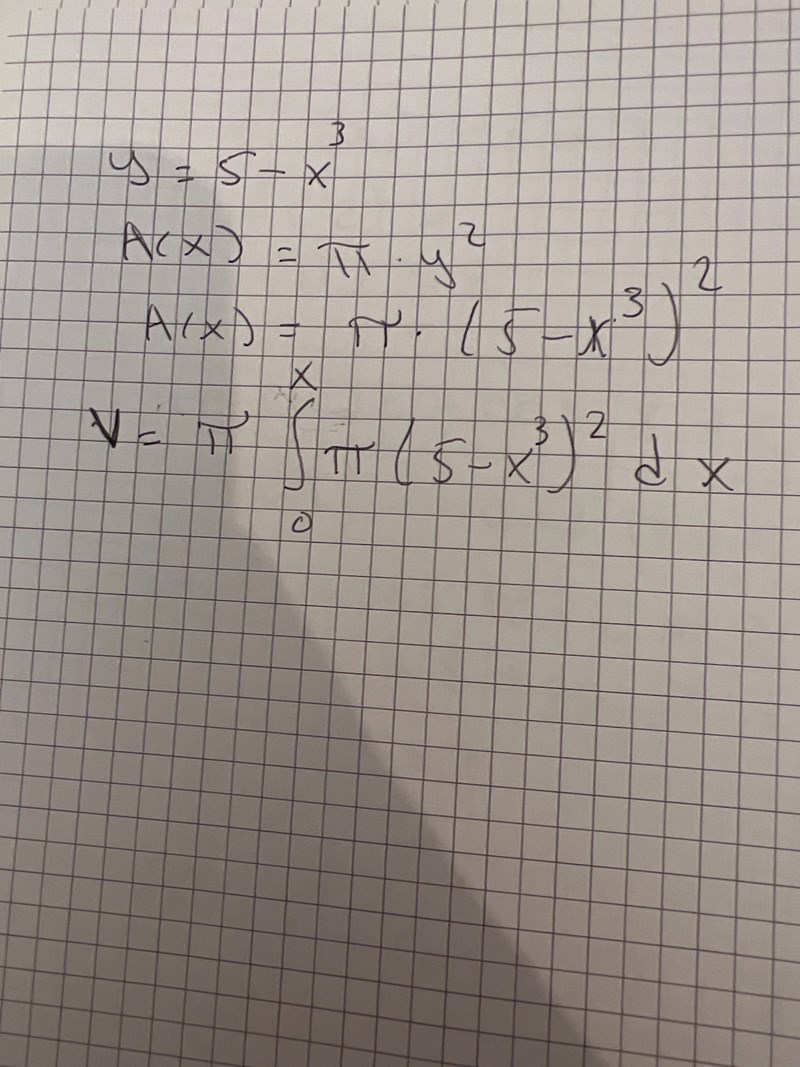 y = 5 - x³
A(x) = π · y²
A(x) = π · (5 - x³)²
V = π ∫₀ˣ π (5 - x³)² dx